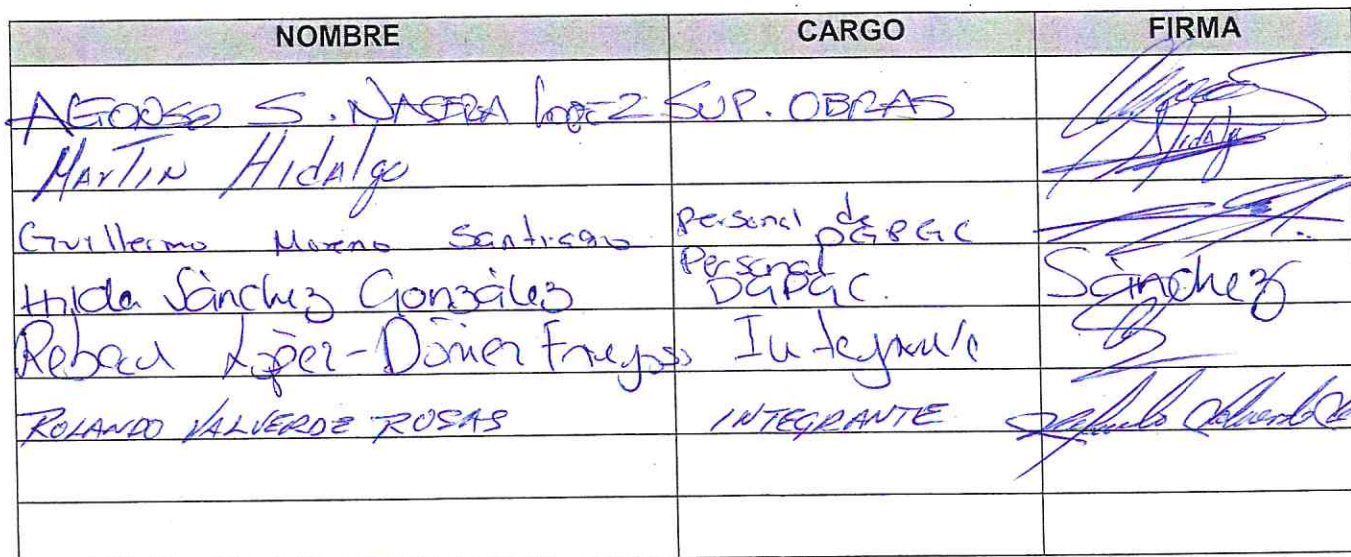 NOMBRE CARGO FIRMA
ALFONSO S. NAJERA LOPEZ SUP. OBRAS
MARTIN HIDALGO Hidalgo
Guillermo Moreno Santiago Personal de DGPGC
Hilda Sánchez González Personal DGPGC. Sánchez
Rebeca López-Dóriga Integrante
ROLANDO VALVERDE ROSAS INTEGRANTE